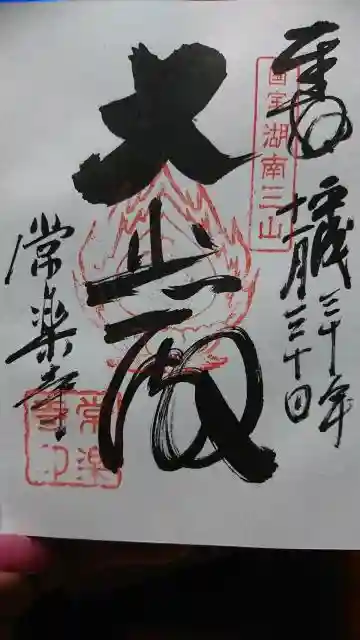 奉拝
平成三十年
十一月三十日
国宝湖南三山
大悲殿
常楽寺
常楽寺印